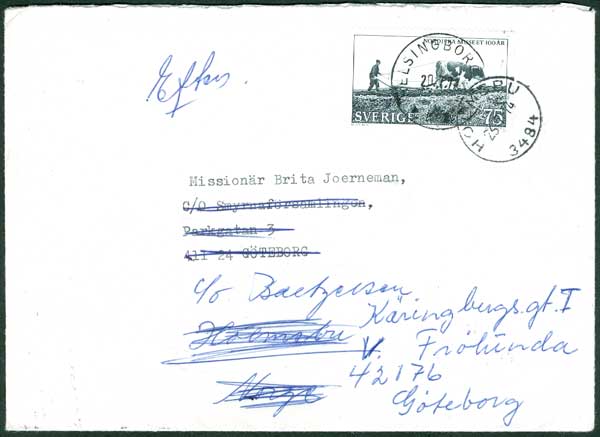 Efters.
NORDISKA MUSEET 100 ÅR
SVERIGE 75
HELSINGBORG
20.1.77
3484
Missionär Brita Joerneman,
C/O Smyrnaförsamlingen,
Parkgatan 3
411 24 GÖTEBORG
c/o Baetzersen
Käringbergs.gt. I
Holmsbu
V. Frölunda
Norge
42176
Göteborg